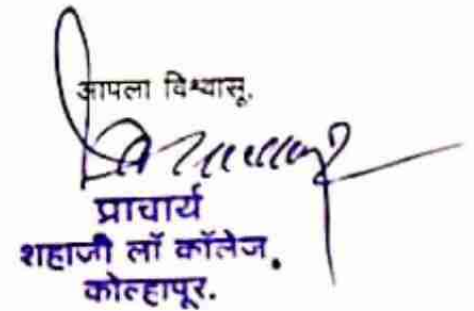 आपला विश्वासू.
प्राचार्य
शहाजी लॉ कॉलेज.
कोल्हापूर.